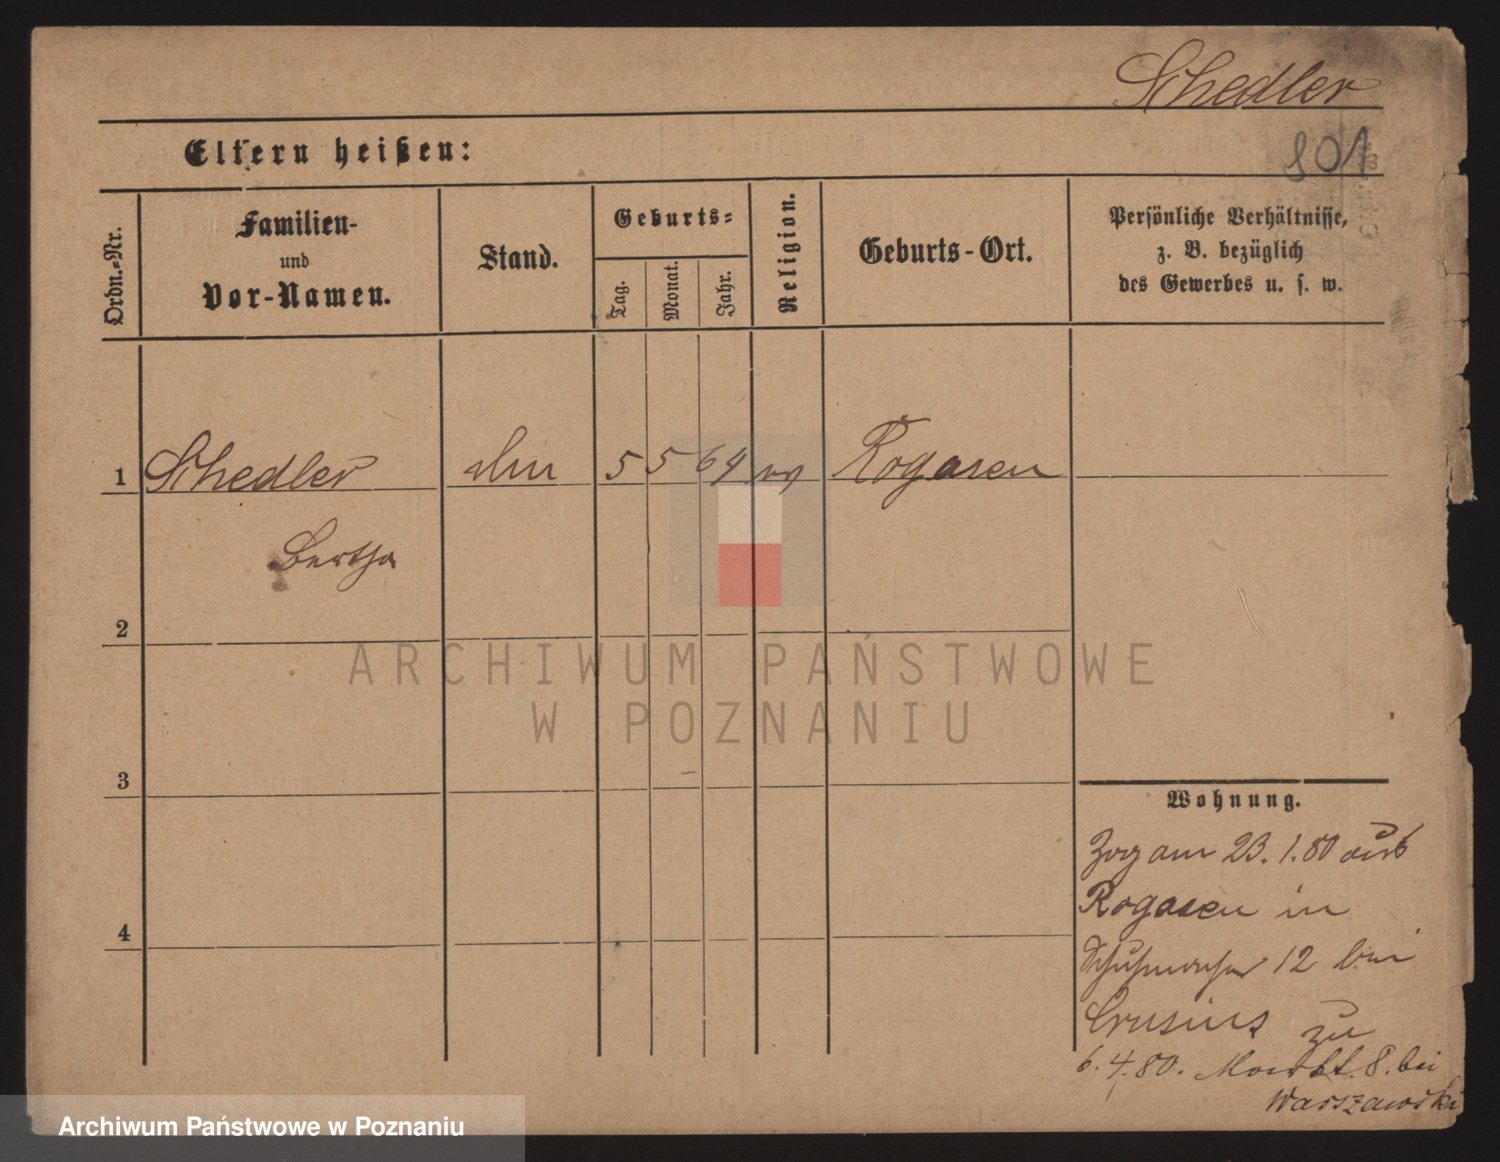 Schedler
801
Eltern heißen:
Ordn.-Nr.
Familien-
und
Vor-Namen.
Stand.
Geburts-
Tag.
Monat.
Jahr.
Religion.
Geburts-Ort.
Persönliche Verhältnisse,
z. B. bezüglich
des Gewerbes u. s. w.
1 Schedler 5 5 64 Rogasen
Bertha
2
3
4
Wohnung.
Zog am 23.1.80 aus
Rogasen in
Schuhmacher 12 bei
Crusius zu
6.4.80. Markt 8. bei
Warszawski
ARCHIWUM PAŃSTWOWE
W POZNANIU
Archiwum Państwowe w Poznaniu